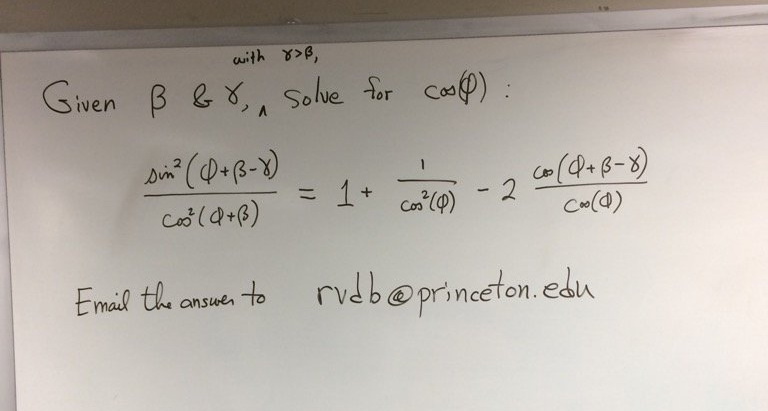 with γ>β,
Given β & γ, ^ solve for cos(φ) :
sin²(φ+β-γ) / cos²(φ+β) = 1 + 1 / cos²(φ) - 2 cos(φ+β-γ) / cos(φ)
Email the answer to rvdb@princeton.edu